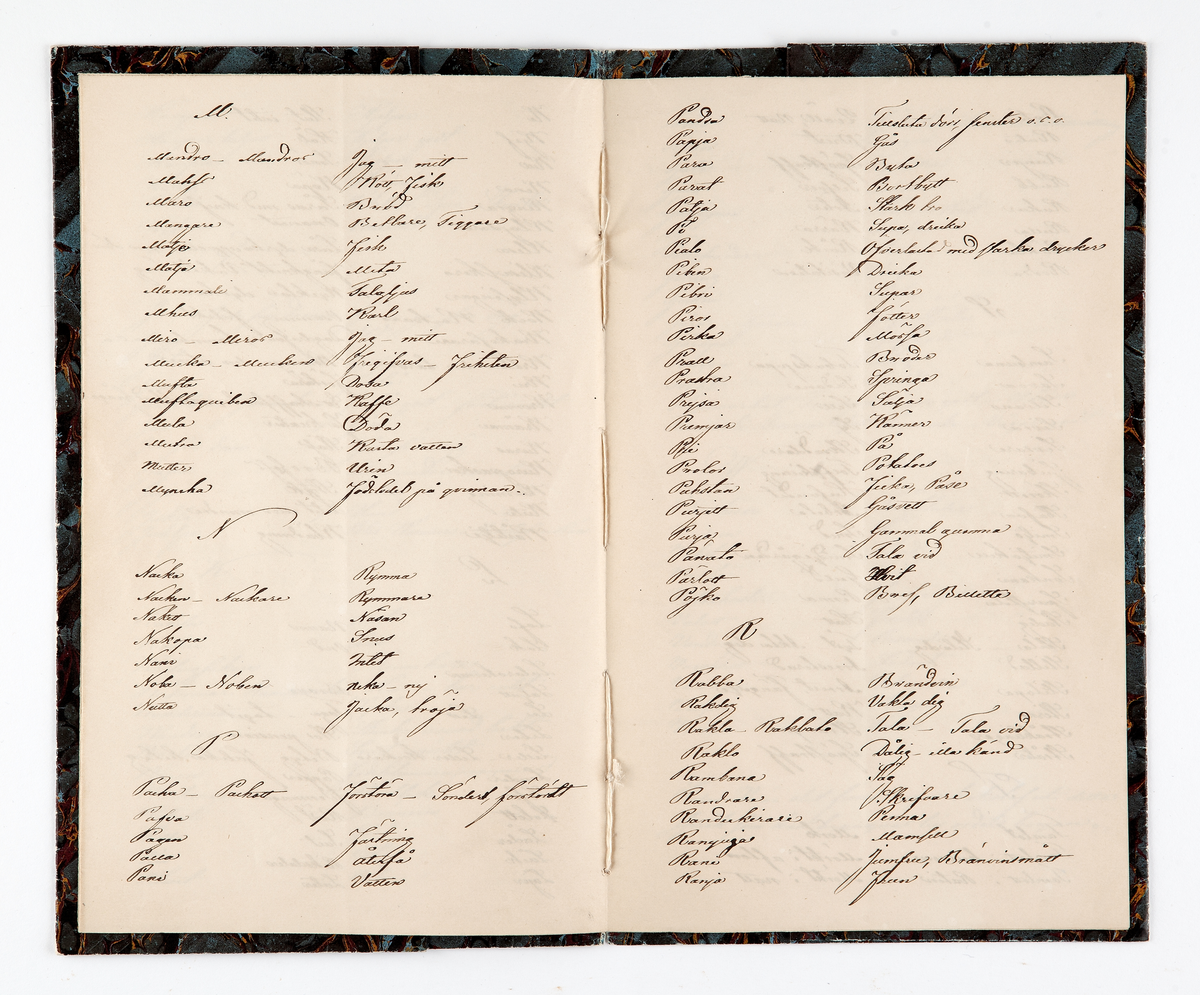 M.
Mandro – Mandros Jag – mitt
Mahs Kött, Fisk
Maro Bröd
Mangare Betlare, Tiggare
Matjo Fisk
Matja Meta
Mammali Talgljus
Mhus Karl
Miro – Miros Jag – mitt
Mucka – Mucken Frigifvas – Friheten
Mufta Dosa
Muftaquiben Kaffe
Mula Döda
Mutra Kasta vatten
Mutter Urin
Myncha Födslodel på qvinnan
N
Nacka Rymma
Nacken – Nackare Rymmare
Nakett Näsan
Nakopa Snus
Nani Intet
Noba – Noben neka – nej
Nutta Jacka, tröja
P
Pacha – Pachatt Förstöra – Sönder, förstördt
Pafva
Pagen Förtning
Palla återfå
Pani Vatten
Pandra Tillsluta dörr, fenster o.c.o.
Papja Gås
Para Byta
Parat Bortbytt
Patja Stark tro
Pi Supa, dricka
Pialo Öfverlastad med starka drycker
Piben Dricka
Pibri Supar
Piros Fötter
Pirka Mössa
Prall Bröder
Prastra Springa
Prejsa Sälja
Primjar Känner
Pri På
Prolos Potatoes
Puhstan Ficka, Påse
Purjett Gåsvett
Purjo Gammal quenna
Pänrato Tala vid
Pärlott Hvit
Pöjko Bref, Billette
R
Rabba Brändvin
Rakdig Vakta dig
Rakla – Raklato Tala – Tala vid
Raklo Dålig – illa känd
Rambana Såg
Randrare Skrifvare
Randrikirare Penna
Ranjuja Mamsell
Rani Jumfru, Bränvinsmått
Ranja Frun